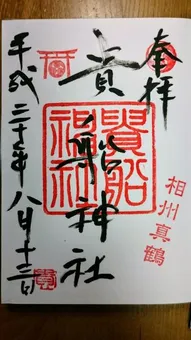 奉拝
相州真鶴
貴船神社
貴船
神社
平成二十七年八月十三日